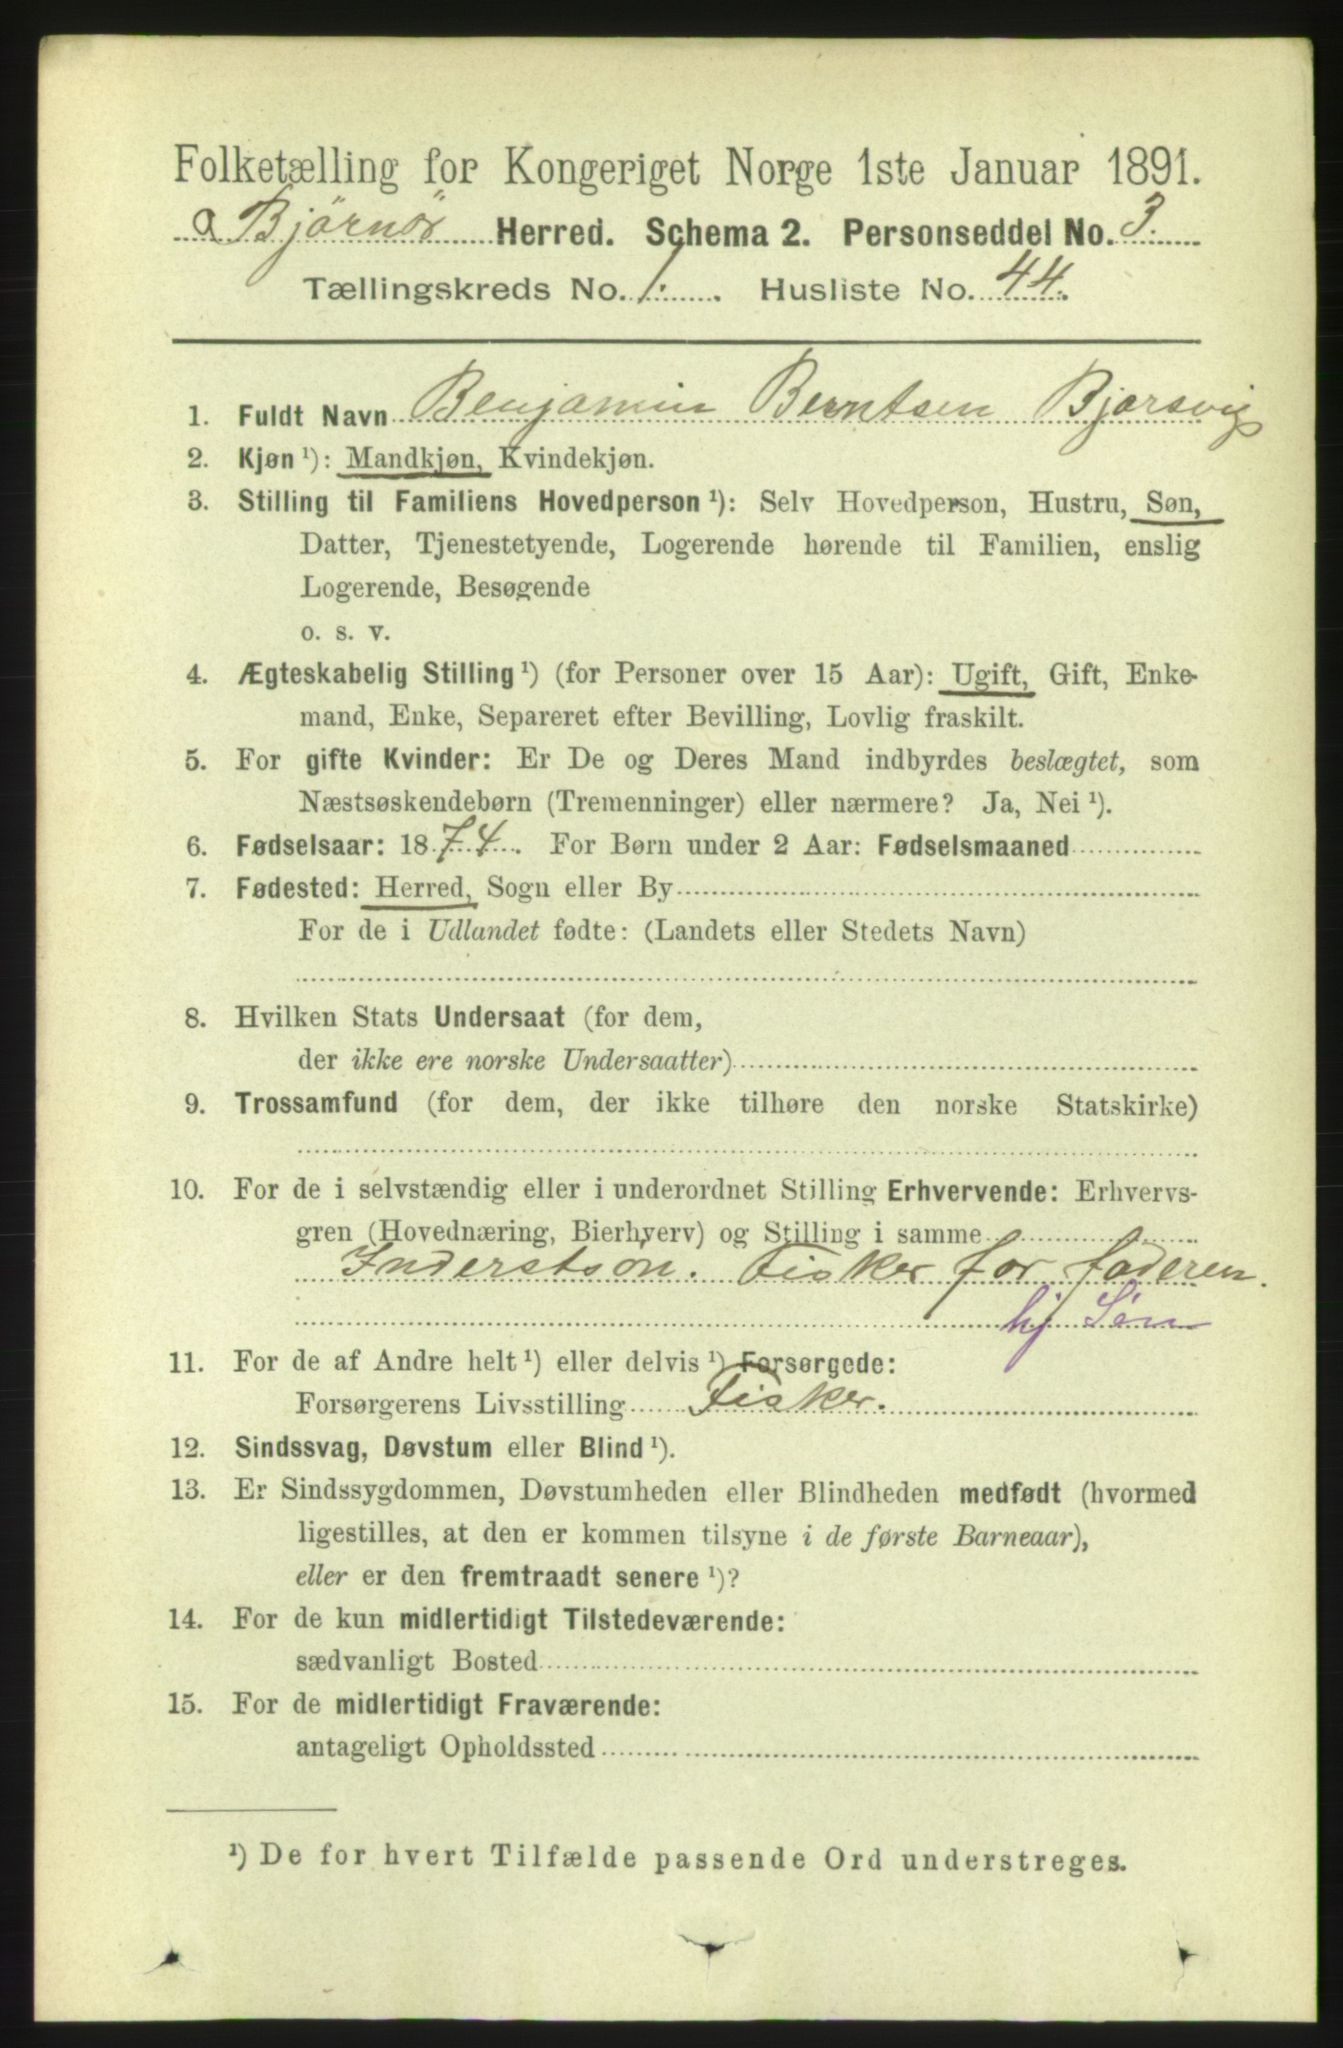 Folketælling for Kongeriget Norge 1ste Januar 1891.
a Bjørnør Herred. Schema 2. Personseddel No. 3.
Tællingskreds No. 1. Husliste No. 44.
1. Fuldt Navn Benjamin Berntsen Bjørsvig
2. Kjøn ¹): Mandkjøn, Kvindekjøn.
3. Stilling til Familiens Hovedperson ¹): Selv Hovedperson, Hustru, Søn,
Datter, Tjenestetyende, Logerende hørende til Familien, enslig
Logerende, Besøgende
o. s. v.
4. Ægteskabelig Stilling ¹) (for Personer over 15 Aar): Ugift, Gift, Enke-
mand, Enke, Separeret efter Bevilling, Lovlig fraskilt.
5. For gifte Kvinder: Er De og Deres Mand indbyrdes beslægtet, som
Næstsøskendebørn (Tremenninger) eller nærmere? Ja, Nei ¹).
6. Fødselsaar: 1874. For Børn under 2 Aar: Fødselsmaaned
7. Fødested: Herred, Sogn eller By
For de i Udlandet fødte: (Landets eller Stedets Navn)
8. Hvilken Stats Undersaat (for dem,
der ikke ere norske Undersaatter)
9. Trossamfund (for dem, der ikke tilhøre den norske Statskirke)
10. For de i selvstændig eller i underordnet Stilling Erhvervende: Erhvervs-
gren (Hovednæring, Bierhverv) og Stilling i samme
Inderstsön. Fisker for faderen.
hj Søn
11. For de af Andre helt ¹) eller delvis ¹) Forsørgede:
Forsørgerens Livsstilling Fisker.
12. Sindssvag, Døvstum eller Blind ¹).
13. Er Sindssygdommen, Døvstumheden eller Blindheden medfødt (hvormed
ligestilles, at den er kommen tilsyne i de første Barneaar),
eller er den fremtraadt senere ¹)?
14. For de kun midlertidigt Tilstedeværende:
sædvanligt Bosted
15. For de midlertidigt Fraværende:
antageligt Opholdssted
¹) De for hvert Tilfælde passende Ord understreges.